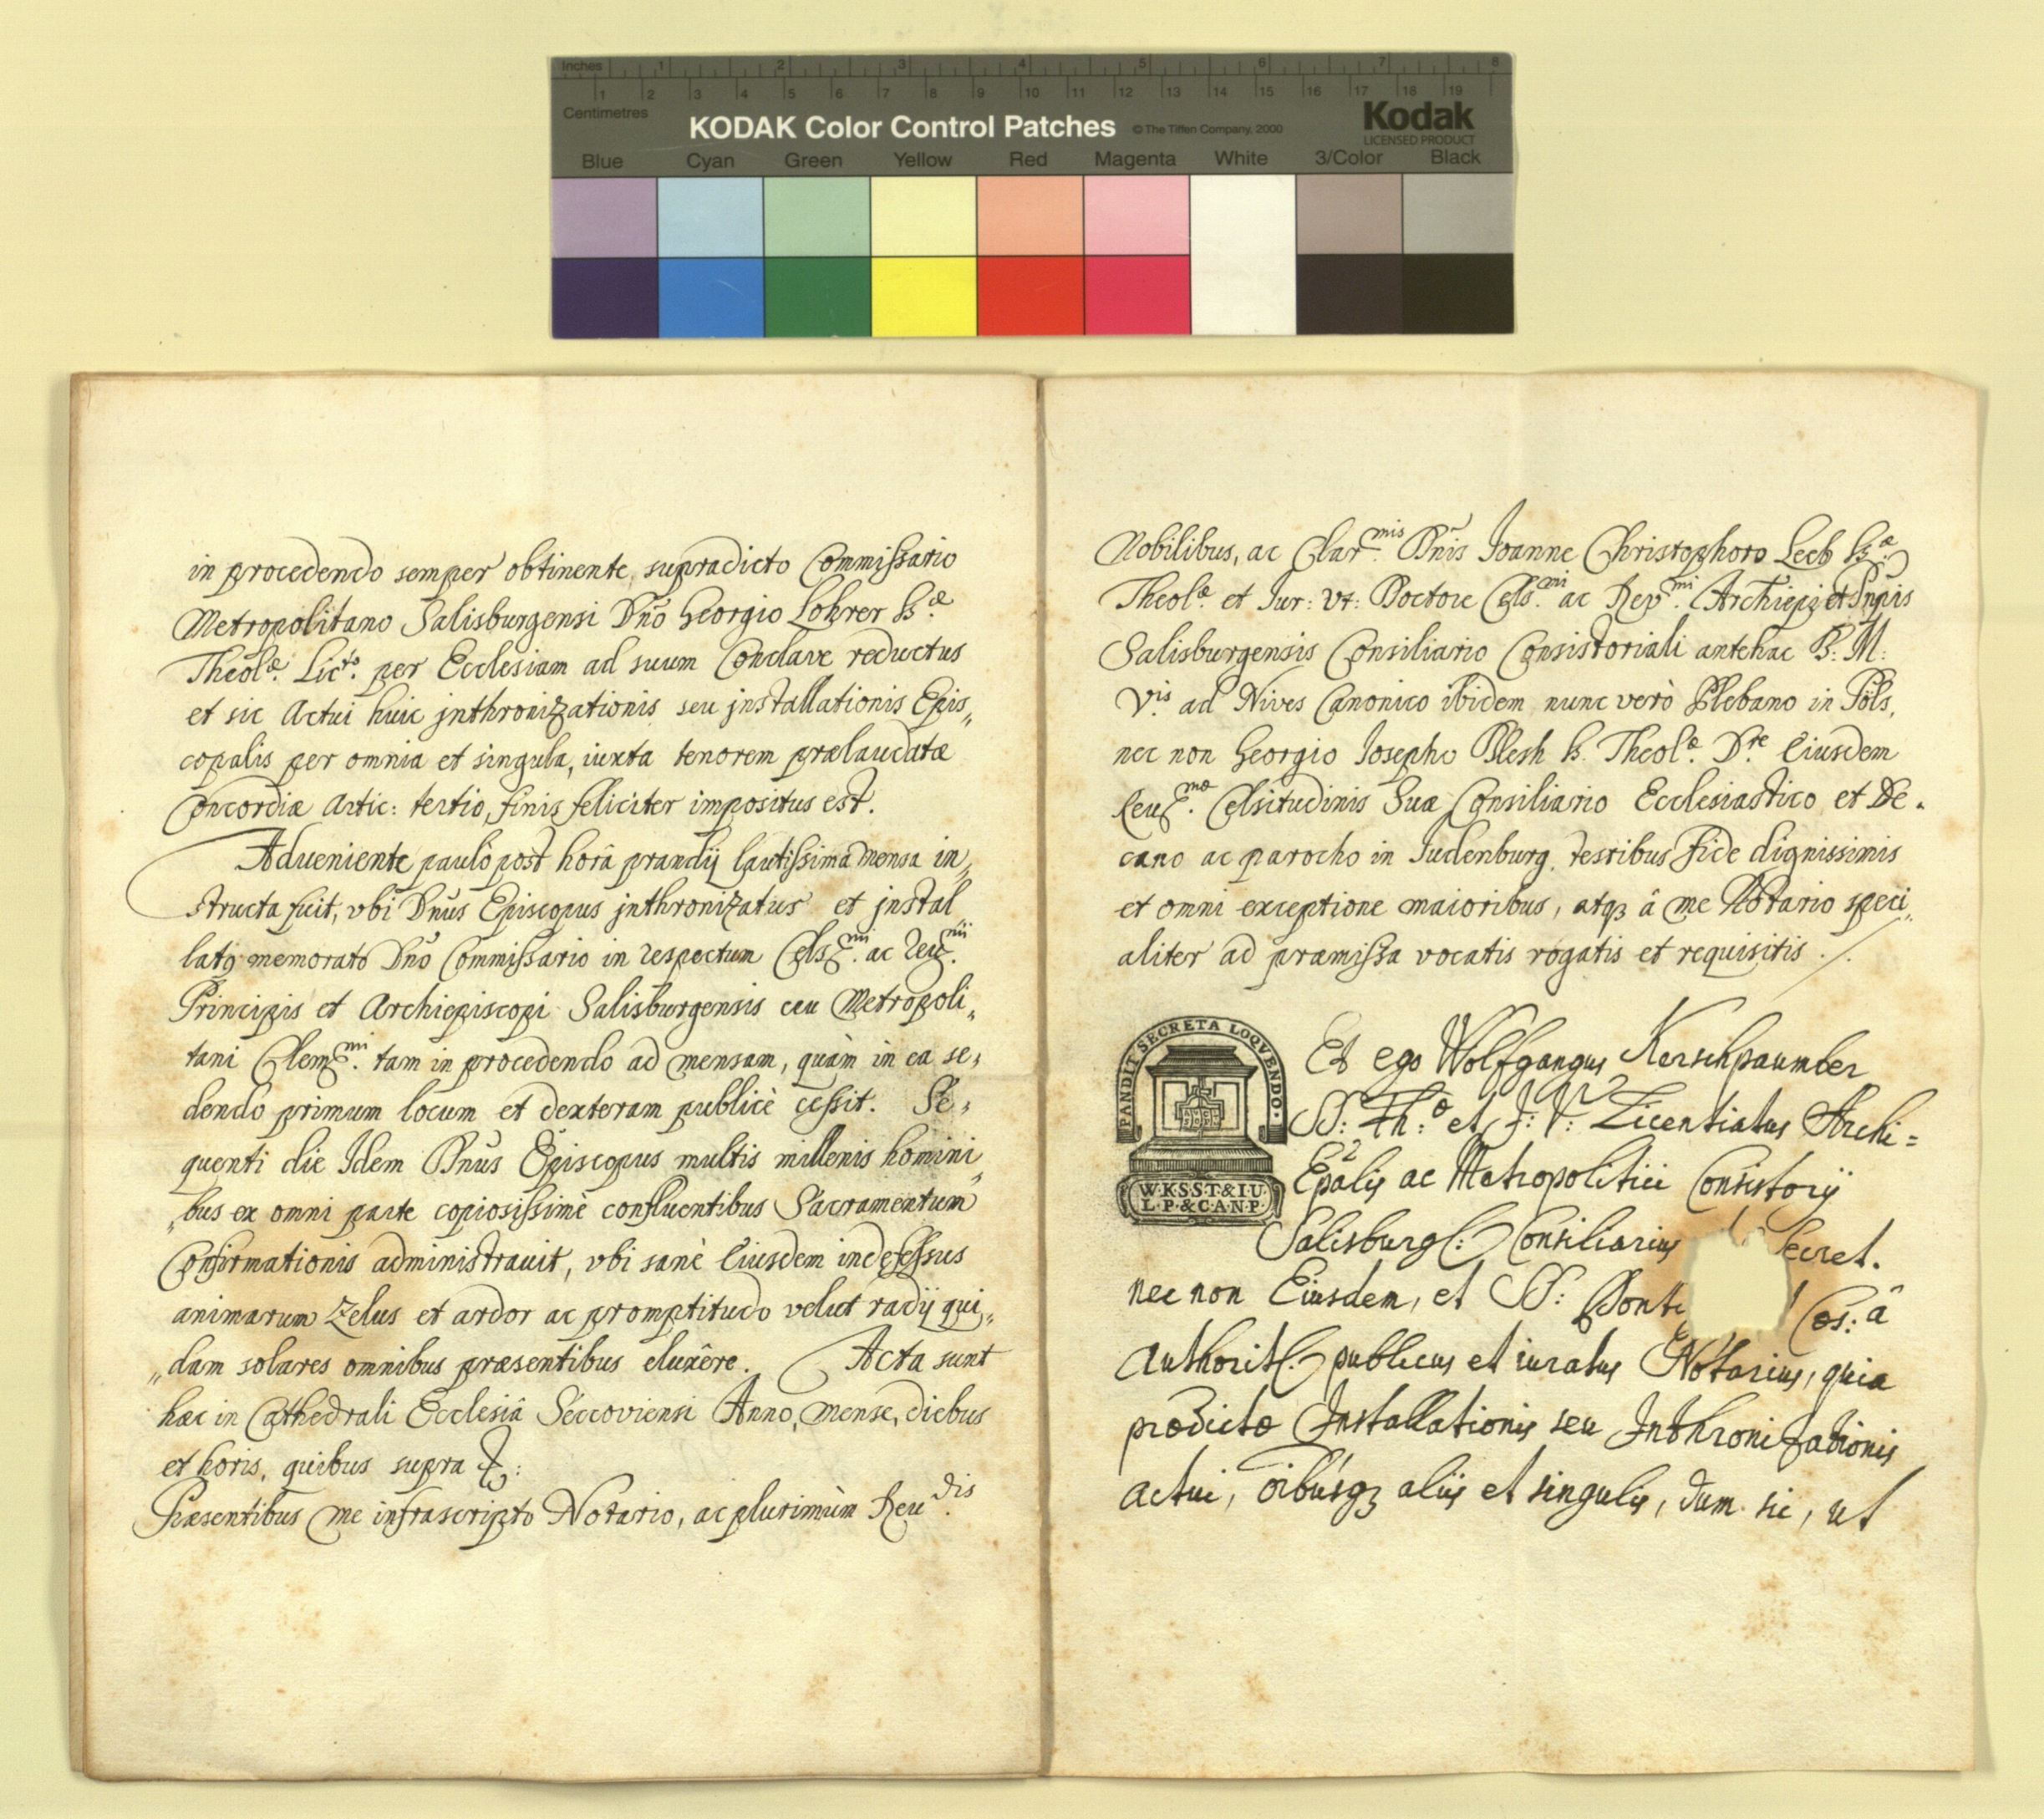 Inches 1 2 3 4 5 6 7 8
1 2 3 4 5 6 7 8 9 10 11 12 13 14 15 16 17 18 19
Centimetres
KODAK Color Control Patches © The Tiffen Company, 2000 Kodak
LICENSED PRODUCT
Blue Cyan Green Yellow Red Magenta White 3/Color Black
in procedendo semper obtinente, supradicto Commissario
Metropolitano Salisburgensi Dño Georgio Lohrer S.æ
Theol.æ Lic.to per Ecclesiam ad suum Conclave reductus
et sic Actui huic jnthronizationis seu jnstallationis Epis„
copalis per omnia et singula, iuxta tenorem prælaudatæ
Concordiæ Artic: tertio, finis feliciter impositus est.
Adueniente paulò post horâ prandij lautissima mensa in„
structa fuit, vbi Dñus Episcopus jnthronizatus et jnstal„
latq memorato Dño Commissario in respectum Cels.mi ac Reu.mi
Principis et Archiepiscopi Salisburgensis ceu Metropoli„
tani Clem.mi tam in procedendo ad mensam, quàm in ea se„
dendo primum locum et dexteram publicè cessit. Se„
quenti die Idem Dñus Episcopus multis millenis homini„
„bus ex omni parte copiosissimè confluentibus Sacramentum
Confirmationis administrauit, vbi sanè Eiusdem indefessus
animarum zelus et ardor ac promptitudo velut radij qui„
„dam solares omnibus præsentibus eluxêre. Acta sunt
hæc in Cathedrali Ecclesiâ Seccoviensi Anno, mense, diebus
et horis, quibus supra
Præsentibus me infrascripto Notario, ac plurimùm Reu.dis
Nobilibus, ac Clar.mis Dñis Joanne Christophoro Leeb S.æ
Theol.æ et Iur: Vt: Doctore Cels.mi ac Rev.mi Archiep: et Prıpis
Salisburgensis Consiliario Consistoriali antehac B: M:
V.is ad Nives Canonico ibidem nunc verò Plebano in Pöls,
nec non Georgio Iosepho Plesh S. Theol.æ D.re Eiusdem
Reu.mæ Celsitudinis Suæ Consiliario Ecclesiastico et De„
cano ac parocho in Judenburg, testibus fide dignissimis
et omni exceptione maioribus, atqꝫ â me Notario speci„
aliter ad præmissa vocatis rogatis et requisitis ./.
PANDIT SECRETA LOQVENDO.
W·K·S·S·T·&·I·U·
L·P·&·C·A·N·P·
Et ego Wolfgangus Kerschpaumber
SS: Th:æ et J: V: Licentiatus Archi=
Epālis ac Metropolitici Consistorij
Salisburg: Consiliarius Secret.
nec non Eiusdem, et SS: Ponti Cæs:â
Authorit: publicus et iuratus Notarius, quia
prædictæ Installationis seu Inthronizationis
actui, oībusqꝫ alijs et singulis, dum sic, ut